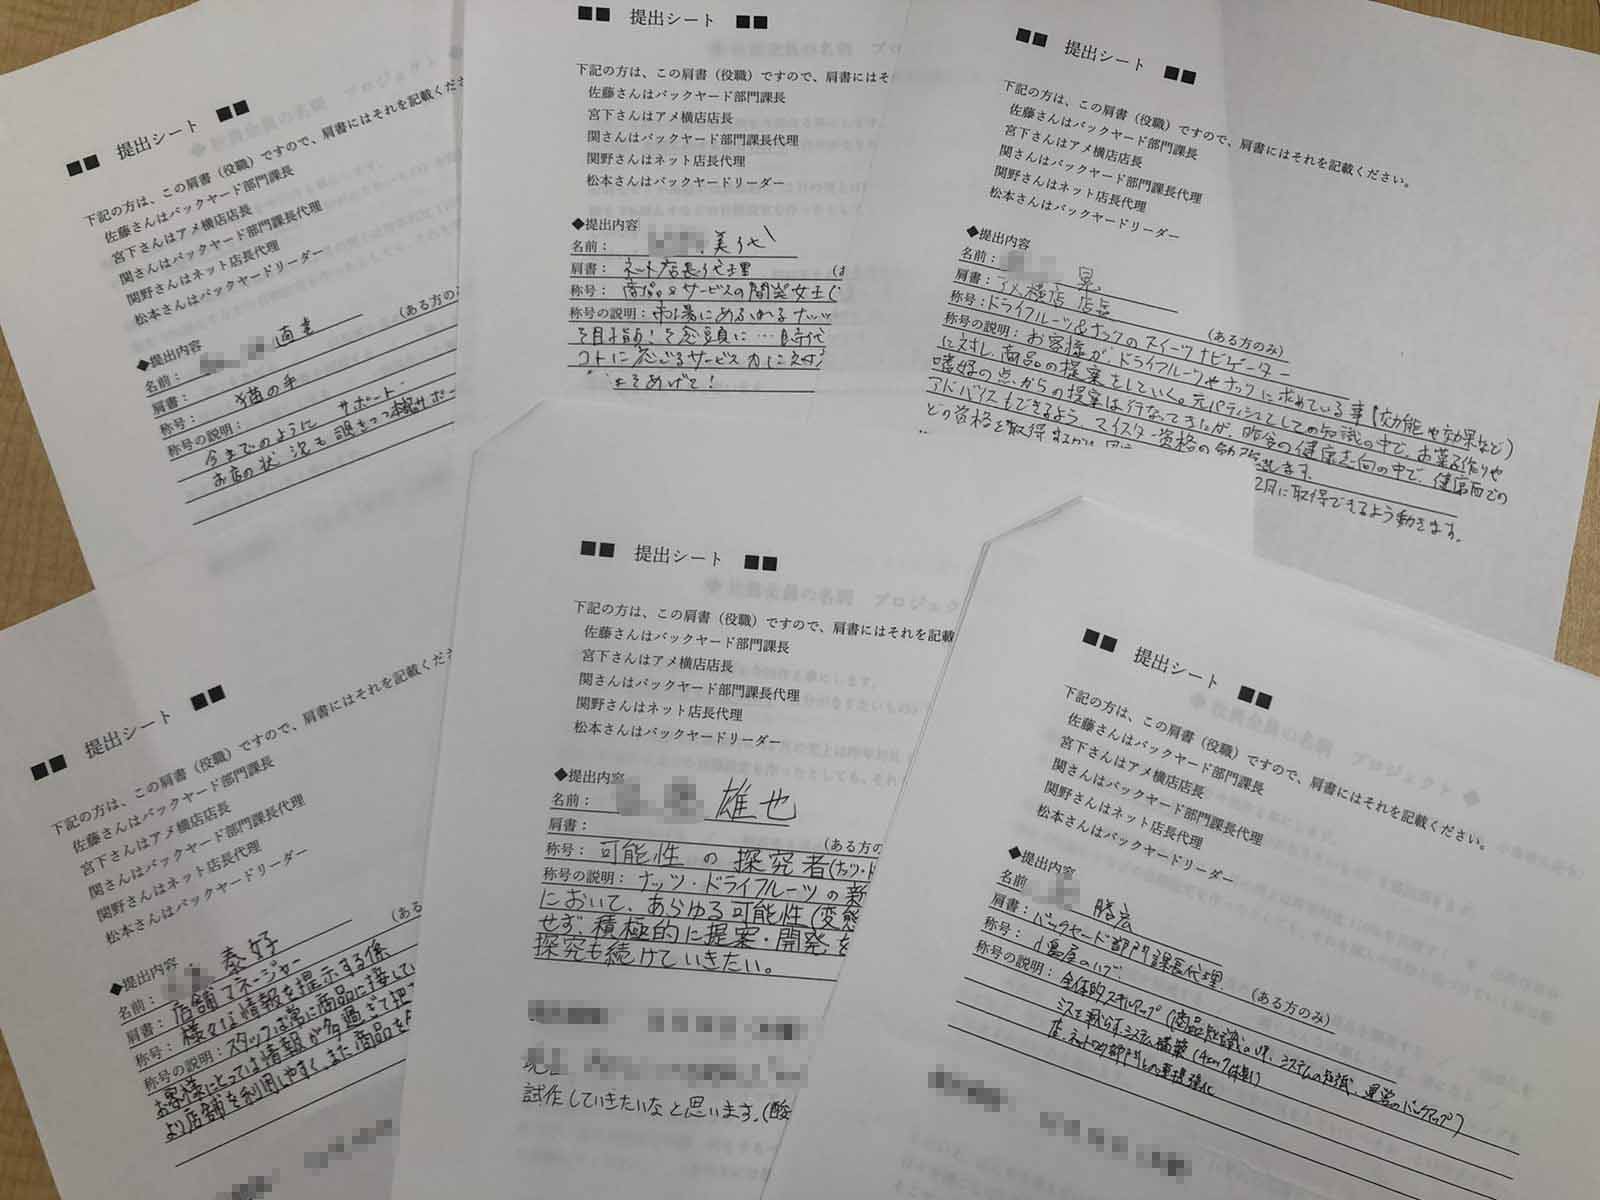 ■■ 提出シート ■■
下記の方は、この肩書（役職）ですので、肩書にはそれを記載くださ
佐藤さんはバックヤード部門課長
宮下さんはアメ横店店長
関さんはバックヤード部門課長代理
関野さんはネット店長代理
松本さんはバックヤードリーダー
◆提出内容
名前：
肩書： (ある方のみ)
称号： 猫の手
称号の説明： サポート.
今までのように
お店の状況も
■■ 提出シート ■■
下記の方は、この肩書（役職）ですので、肩書にはそ
佐藤さんはバックヤード部門課長
宮下さんはアメ横店店長
関さんはバックヤード部門課長代理
関野さんはネット店長代理
松本さんはバックヤードリーダー
◆提出内容
名前： 美代
肩書： ネット店長代理
称号： 商品&サービスの開発女王
称号の説明： 市場にあふれるナッツ
■■ 提出シート ■■
下記の方は、この肩書（役職）ですので、肩書にはそれを記載ください。
佐藤さんはバックヤード部門課長
宮下さんはアメ横店店長
関さんはバックヤード部門課長代理
関野さんはネット店長代理
松本さんはバックヤードリーダー
◆提出内容
名前：
肩書： 横店 店長 (ある方のみ)
称号：ドライフルーツ&ナッツのスイーツナビゲーター
称号の説明： お客様が、ドライフルーツやナッツに求めている事(効能や効果など)
に対し、商品の提案をしていく。元パティシエとしての知識の中で、お菓子作りや
嗜好の点からの提案は行なってきたが、昨今の健康志向の中で、健康面での
アドバイスもできるよう、マイスター資格の
どの資格を取得するか 2月に取得できるよう動きます。
■■ 提出シート ■■
下記の方は、この肩書（役職）ですので、肩書にはそれを記載くだ
佐藤さんはバックヤード部門課長
宮下さんはアメ横店店長
関さんはバックヤード部門課長代理
関野さんはネット店長代理
松本さんはバックヤードリーダー
◆提出内容
名前： 泰好
肩書： 店舗マネージャー (ある
称号： 様々な情報を提示する係
称号の説明：スタッフは常に商品に接してい
お客様にとっては情報が多過ぎて把
より店舗を利用しやすく、また商品を
■■ 提出シート ■■
下記の方は、この肩書（役職）ですので、肩書にはそれを記載
佐藤さんはバックヤード部門課長
宮下さんはアメ横店店長
関さんはバックヤード部門課長代理
関野さんはネット店長代理
松本さんはバックヤードリーダー
◆提出内容
名前： 雄也
肩書： (ある方の
称号： 可能性の探究者(ナッツ・ド
称号の説明： ナッツ・ドライフルーツの新
において、あらゆる可能性(変態
せず、積極的に提案・開発、を
探究も続けていきたい。
現在、
試作していきたいなと思います。(酸
■■ 提出シート ■■
下記の方は、この肩書（役職）ですので、肩書にはそれを記載ください。
佐藤さんはバックヤード部門課長
宮下さんはアメ横店店長
関さんはバックヤード部門課長代理
関野さんはネット店長代理
松本さんはバックヤードリーダー
◆提出内容
名前 勝宏
肩書： バックヤード部門課長代理. (ある方のみ)
称号： 小島屋のハブ
称号の説明： 全体的スキルアップ(商品知識のUP、システムの知識、運営のバックアップ)
ミスを減らす、システム構築
店、ネットの部門との連携強化